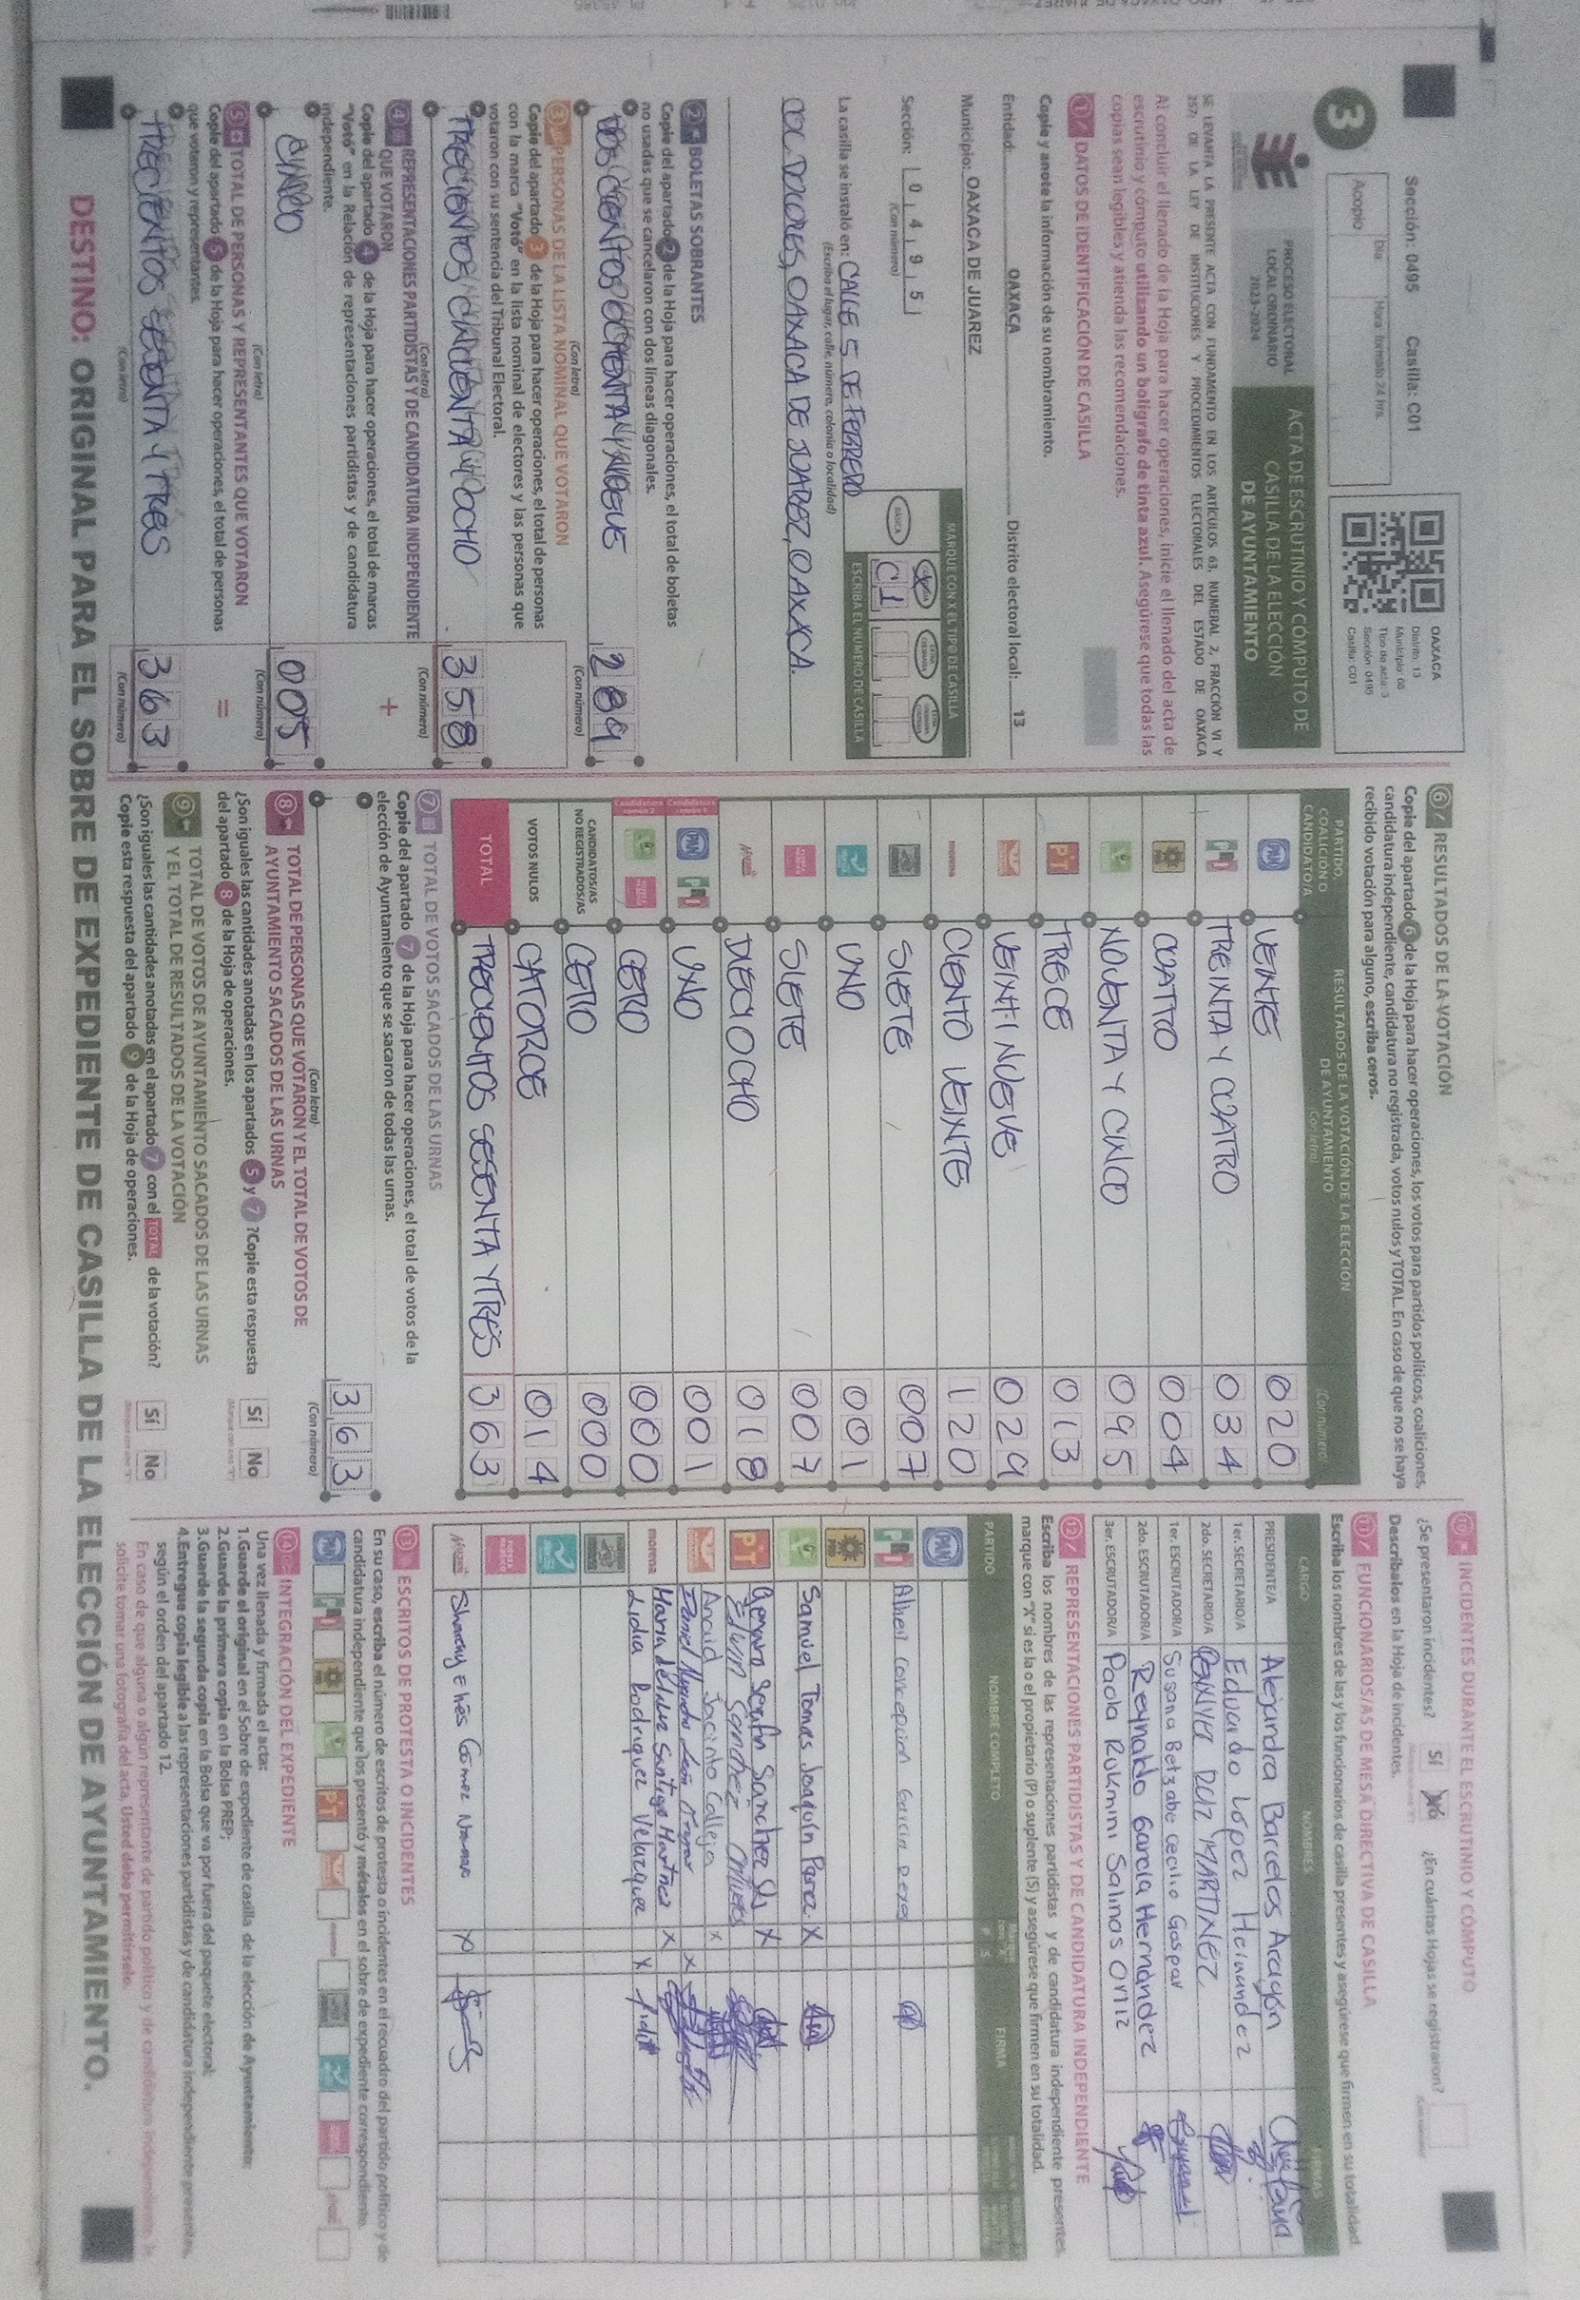 Sección: 0495 Casilla: C01
3
Acopio
Día
Hora formato 24 Hrs.
OAXACA
Distrito: 13
Municipio: 68
Tipo de acta: 3
Sección: 0495
Casilla: C01
PROCESO ELECTORAL
LOCAL ORDINARIO
2023-2024
ACTA DE ESCRUTINIO Y CÓMPUTO DE
CASILLA DE LA ELECCIÓN
DE AYUNTAMIENTO
SE LEVANTA LA PRESENTE ACTA CON FUNDAMENTO EN LOS ARTÍCULOS 63, NUMERAL 2, FRACCIÓN VI Y
257; DE LA LEY DE INSTITUCIONES Y PROCEDIMIENTOS ELECTORALES DEL ESTADO DE OAXACA
Al concluir el llenado de la Hoja para hacer operaciones, inicie el llenado del acta de
escrutinio y cómputo utilizando un bolígrafo de tinta azul. Asegúrese que todas las
copias sean legibles y atienda las recomendaciones.
1 DATOS DE IDENTIFICACIÓN DE CASILLA
Copie y anote la información de su nombramiento.
Entidad: OAXACA Distrito electoral local: 13
Municipio: OAXACA DE JUAREZ
Sección: 0 4 9 5
(Con número)
MARQUE CON X EL TIPO DE CASILLA
BÁSICA
C 1
ESCRIBA EL NÚMERO DE CASILLA
La casilla se instaló en: CALLE 5 DE FEBRERO
(Escriba el lugar, calle, número, colonia o localidad)
COL. DOLORES, OAXACA DE JUAREZ, OAXACA.
2 BOLETAS SOBRANTES
Copie del apartado 2 de la Hoja para hacer operaciones, el total de boletas
no usadas que se cancelaron con dos líneas diagonales.
DOSCIENTOS OCHENTA Y NUEVE 289
(Con letra) (Con número)
3 PERSONAS DE LA LISTA NOMINAL QUE VOTARON
Copie del apartado 3 de la Hoja para hacer operaciones, el total de personas
con la marca "Votó" en la lista nominal de electores y las personas que
votaron con su sentencia del Tribunal Electoral.
TRECIENTOS CINCUENTA Y OCHO 358
(Con letra) (Con número)
4 REPRESENTACIONES PARTIDISTAS Y DE CANDIDATURA INDEPENDIENTE
QUE VOTARON
+
Copie del apartado 4 de la Hoja para hacer operaciones, el total de marcas
"Votó" en la Relación de representaciones partidistas y de candidatura
independiente.
CINCO 005
(Con letra) (Con número)
5 TOTAL DE PERSONAS Y REPRESENTANTES QUE VOTARON
=
Copie del apartado 5 de la Hoja para hacer operaciones, el total de personas
que votaron y representantes.
TRECIENTOS SESENTA Y TRES 363
(Con letra) (Con número)
6 RESULTADOS DE LA VOTACIÓN
Copie del apartado 6 de la Hoja para hacer operaciones, los votos para partidos políticos, coaliciones,
candidatura independiente, candidatura no registrada, votos nulos y TOTAL. En caso de que no se haya
recibido votación para alguno, escriba ceros.
PARTIDO, COALICIÓN O CANDIDATO/A
RESULTADOS DE LA VOTACIÓN DE LA ELECCIÓN
DE AYUNTAMIENTO
(Con letra) (Con número)
PAN VEINTE 020
PRI TREINTA Y CUATRO 034
CUATRO 004
NOVENTA Y CINCO 095
PT TRECE 013
VEINTINUEVE 029
morena CIENTO VEINTE 120
SIETE 007
UNO 001
SIETE 007
DIECIOCHO 018
Candidatura común 1 PAN PRI UNO 001
Candidatura común 2 CERO 000
CANDIDATOS/AS
NO REGISTRADOS/AS CERO 000
VOTOS NULOS CATORCE 014
TOTAL TRECIENTOS SESENTA Y TRES 363
7 TOTAL DE VOTOS SACADOS DE LAS URNAS
Copie del apartado 7 de la Hoja para hacer operaciones, el total de votos de la
elección de Ayuntamiento que se sacaron de todas las urnas.
363
(Con letra) (Con número)
8 TOTAL DE PERSONAS QUE VOTARON Y EL TOTAL DE VOTOS DE
AYUNTAMIENTO SACADOS DE LAS URNAS
¿Son iguales las cantidades anotadas en los apartados 5 y 7 ? Copie esta respuesta
del apartado 8 de la Hoja de operaciones.
Sí No
9 TOTAL DE VOTOS DE AYUNTAMIENTO SACADOS DE LAS URNAS
Y EL TOTAL DE RESULTADOS DE LA VOTACIÓN
¿Son iguales las cantidades anotadas en el apartado 7 con el TOTAL de la votación?
Copie esta respuesta del apartado 9 de la Hoja de operaciones.
Sí No
10 INCIDENTES DURANTE EL ESCRUTINIO Y CÓMPUTO
¿Se presentaron incidentes? Sí No ¿En cuántas Hojas se registraron?
Descríbalos en la Hoja de incidentes.
11 FUNCIONARIOS/AS DE MESA DIRECTIVA DE CASILLA
Escriba los nombres de las y los funcionarios de casilla presentes y asegúrese que firmen en su totalidad
CARGO NOMBRES FIRMAS
PRESIDENTE/A Alejandra Barcelos Aragón
1er. SECRETARIO/A Eduardo López Hernandez
2do. SECRETARIO/A RUIZ MARTINEZ
1er. ESCRUTADOR/A Susana Betzabe Cecilio Gaspar
2do. ESCRUTADOR/A Reynaldo García Hernández
3er. ESCRUTADOR/A Paola Rukmini Salinas Ortiz
12 REPRESENTACIONES PARTIDISTAS Y DE CANDIDATURA INDEPENDIENTE
Escriba los nombres de las representaciones partidistas y de candidatura independiente presentes,
marque con "X" si es la o el propietario (P) o suplente (S) y asegúrese que firmen en su totalidad.
PARTIDO NOMBRE COMPLETO P S FIRMA
PAN
PRI Concepcion Garcia
PRD
Samuel Tomas Joaquín Perez X
PT Genaro Serafin Sanchez X
Edwin Sanchez
Anaid Jacinto Calleja X
Daniel Alejandro León X
morena Maria de la Luz Santiago Martinez X
Lidia Rodriguez Velazquez X
Gomez X
13 ESCRITOS DE PROTESTA O INCIDENTES
En su caso, escriba el número de escritos de protesta o incidentes en el recuadro del partido político y de
candidatura independiente que los presentó y métalos en el sobre de expediente correspondiente.
14 INTEGRACIÓN DEL EXPEDIENTE
Una vez llenada y firmada el acta:
1.Guarda el original en el Sobre de expediente de casilla de la elección de Ayuntamiento;
2.Guarda la primera copia en la Bolsa PREP;
3.Guarda la segunda copia en la Bolsa que va por fuera del paquete electoral;
4.Entregue copia legible a las representaciones partidistas y de candidatura independiente presentes,
según el orden del apartado 12.
En caso de que alguna o algún representante de partido político y de candidatura independiente, le
solicite tomar una fotografía del acta, Usted debe permitírselo.
DESTINO: ORIGINAL PARA EL SOBRE DE EXPEDIENTE DE CASILLA DE LA ELECCIÓN DE AYUNTAMIENTO.